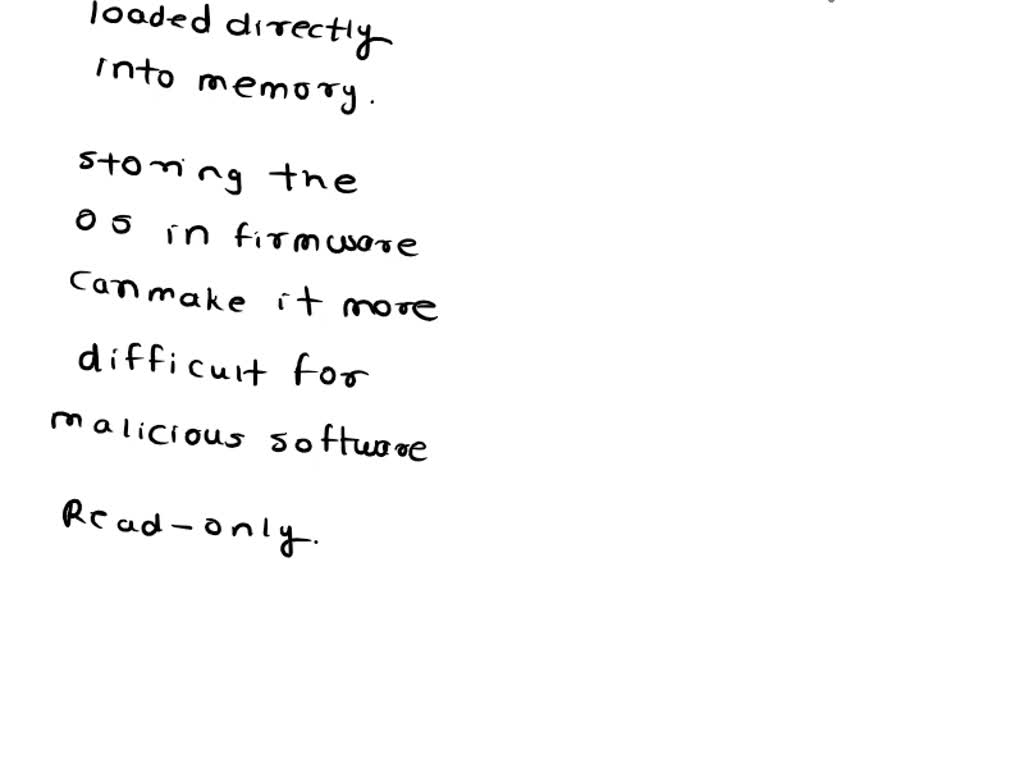 loaded directly
into memory.
storing the
OS in firmware
can make it more
difficult for
malicious software
Read-only.